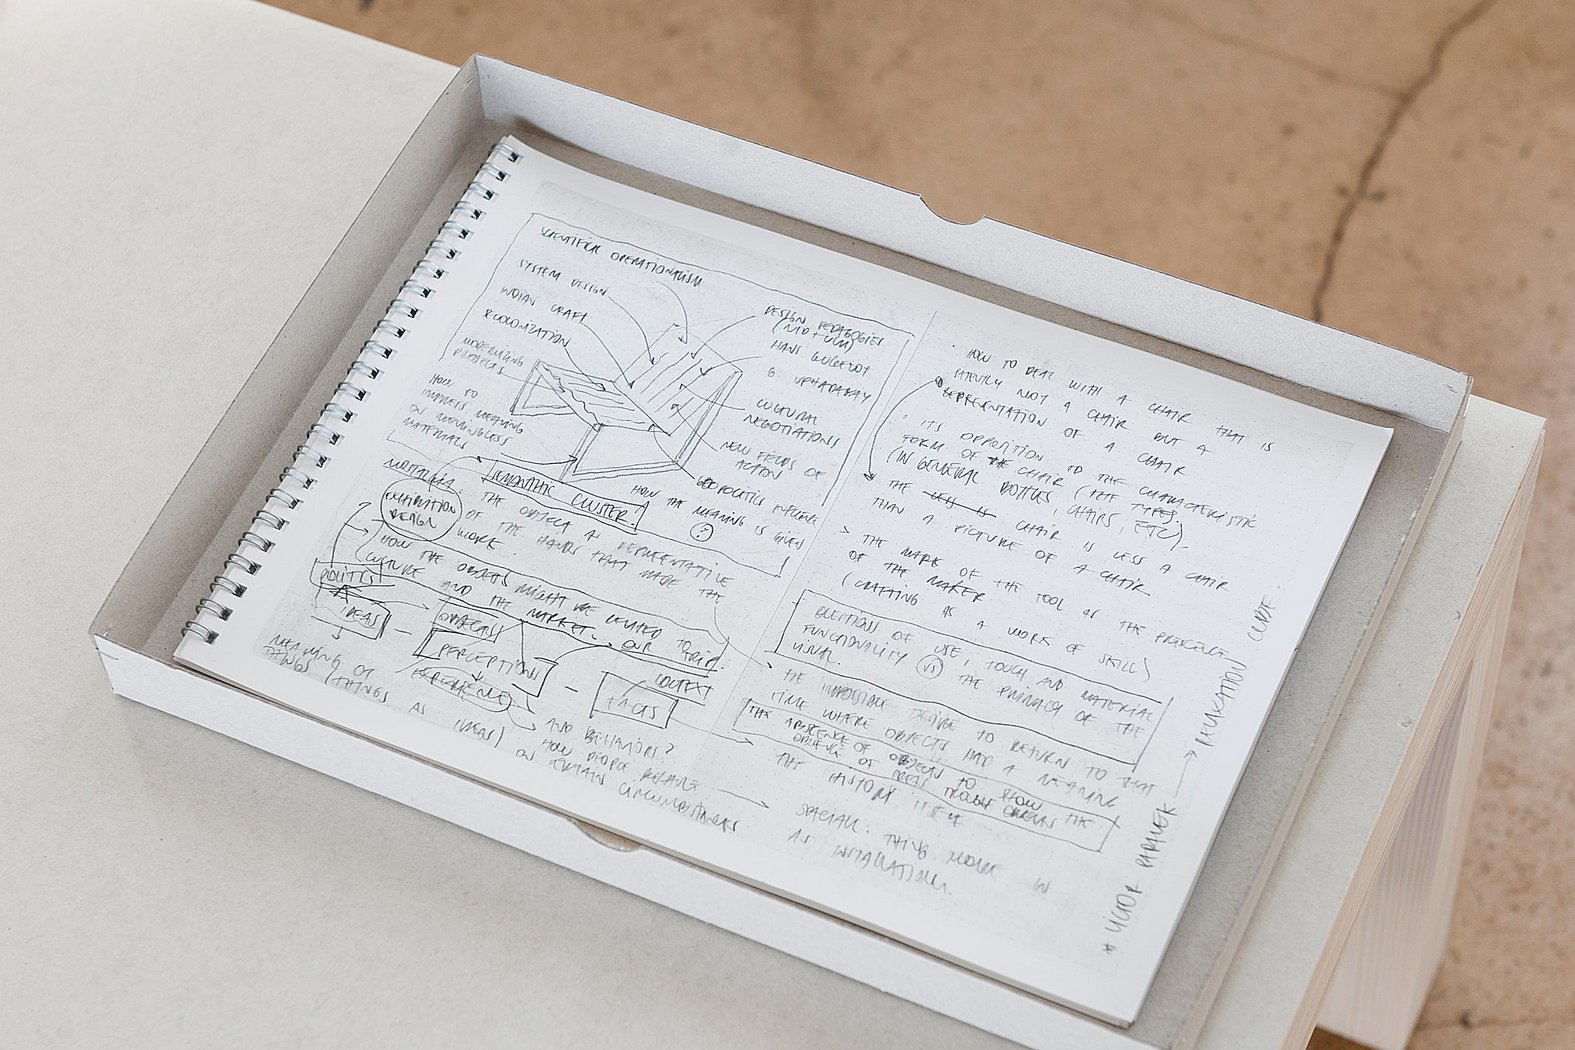 SCIENTIFIC OPERATIONALISM
SYSTEM DESIGN
INDIAN CRAFT
MODERNIZING
PROJECTS
HOW TO
IMPRESS MEANING
ON MEANINGLESS
MATERIALS
DESIGN PEDAGOGIES
(NID + ULM)
HANS GUGELOT
G. UPADHAYAY
CULTURAL
NEGOTIATIONS
NEW FIELDS OF
ACTION
GEOPOLITICS INFLUENCE
HOW THE MEANING IS GIVEN
?
SEMANTIC CLUSTER:
NOSTALGIA.
THE OBJECT AS REPRESENTATIVE
OF THE HANDS THAT MADE THE
WORK.
EXHIBITION
DESIGN
(HOW THE OBJECTS MIGHT BE RELATED TO
CULTURE AND THE MARKET. OUR TRIP.
POLITICS
IDEAS
OBJECTS
PERCEPTIONS
EXPERIENCE
CONTEXT
FACTS
MEANING OF
THINGS
(THINGS AS IDEAS)
AND BEHAVIORS?
HOW PEOPLE BEHAVE
ON CERTAIN CIRCUMSTANCES
· HOW TO DEAL WITH A CHAIR THAT IS
NOT A CHAIR BUT A
REPRESENTATION OF A CHAIR
· ITS OPPOSITION TO THE CHARACTERISTIC
FORM OF CHAIR (THE TYPES)
(IN GENERAL BOTTLES, CHAIRS, ETC).
THE CHAIR IS LESS A CHAIR
THAN A PICTURE OF A CHAIR
> THE MARK OF THE TOOL AS THE PRESENCE
OF THE MAKER
(CRAFTING AS A WORK OF SKILL)
QUESTIONS OF USE, TOUCH AND MATERIAL
FUNCTIONALITY VS THE PRIMACY OF THE
VISUAL.
THE IMPOSSIBLE DESIRE TO RETURN TO THAT
TIME WHERE OBJECTS HAD A MEANING
THE ABSENCE OF OBJECTS TO SHOW THE
THE HISTORY ITSELF
SPECIAL: THING MORE IN
AS INSTALLATION.
* VICTOR PAPANEK → NEURATION CUBE